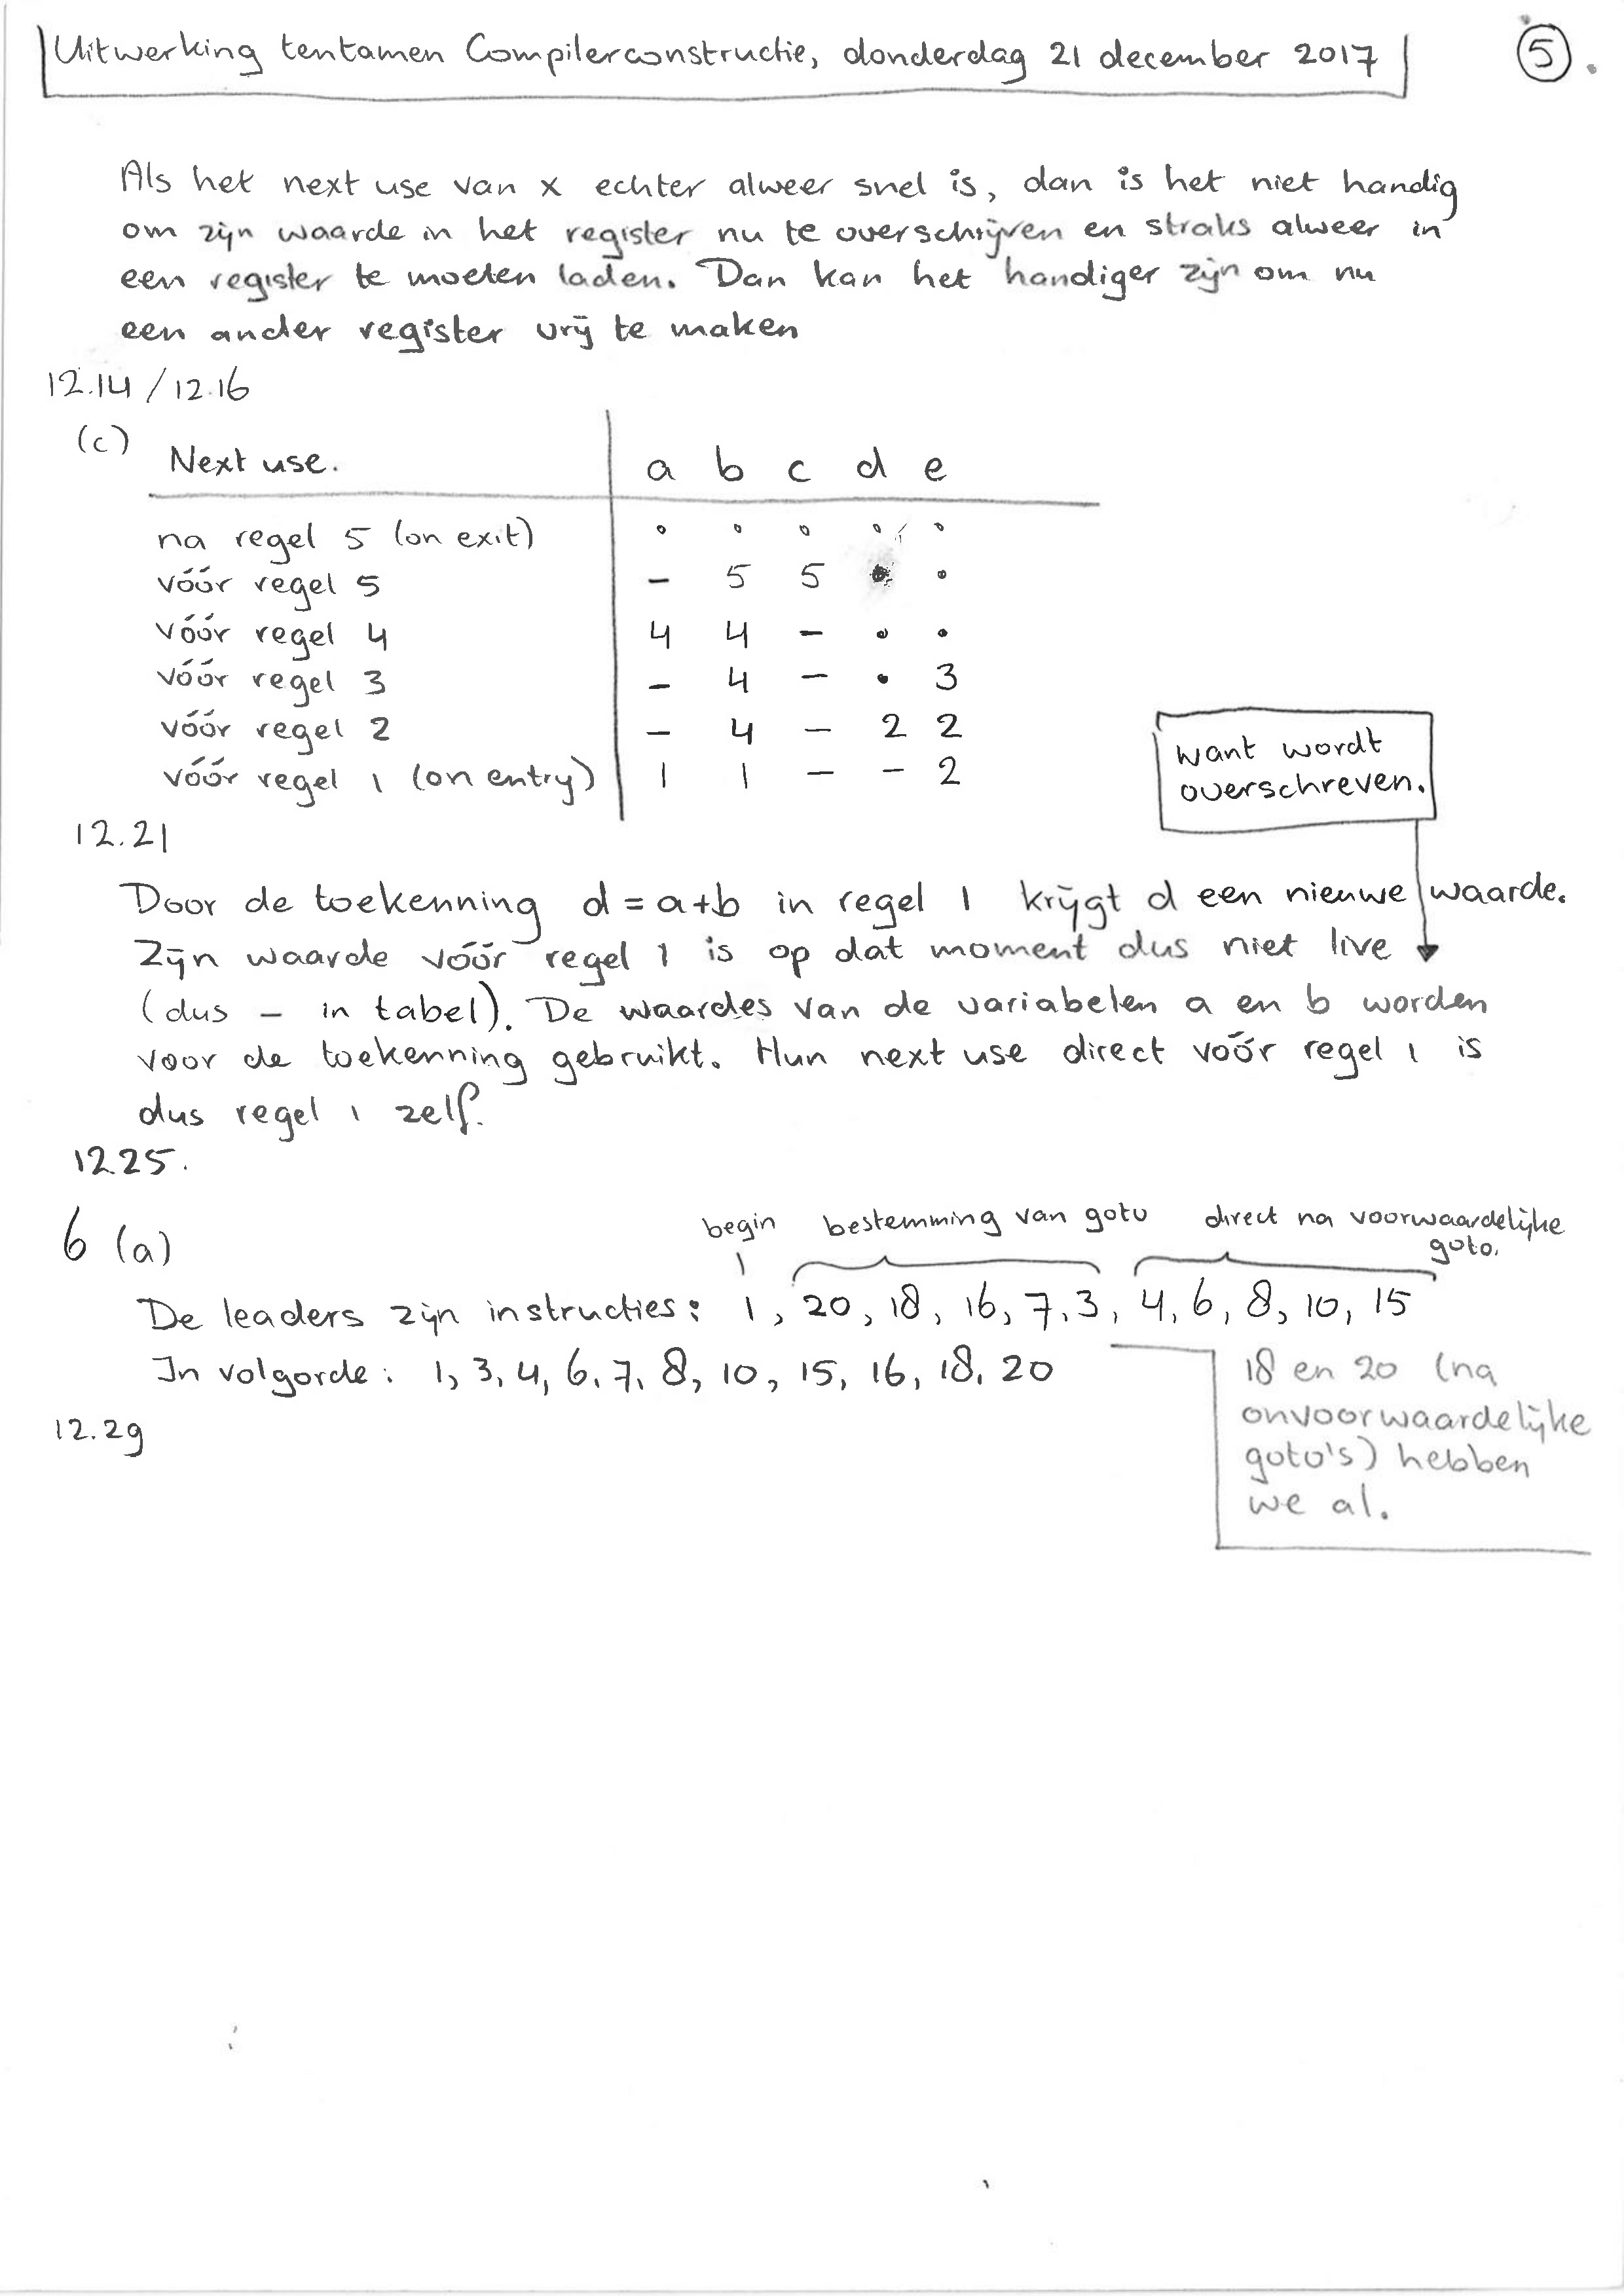 Uitwerking tentamen Compilerconstructie, donderdag 21 december 2017
5.
Als het next use van x echter alweer snel is, dan is het niet handig
om zijn waarde in het register nu te overschrijven en straks alweer in
een register te moeten laden. Dan kan het handiger zijn om nu
een ander register vrij te maken
12.14 / 12.16
(c) Next use. a b c d e
na regel 5 (on exit) • • • • •
vóór regel 5 – 5 5 • •
vóór regel 4 4 4 – • •
vóór regel 3 – 4 – • 3
vóór regel 2 – 4 – 2 2
vóór regel 1 (on entry) 1 1 – – 2
want wordt
overschreven.
12.21
Door de toekenning d = a+b in regel 1 krijgt d een nieuwe waarde.
Zijn waarde vóór regel 1 is op dat moment dus niet live
(dus – in tabel). De waardes van de variabelen a en b worden
voor de toekenning gebruikt. Hun next use direct vóór regel 1 is
dus regel 1 zelf.
12.25.
begin bestemming van goto direct na voorwaardelijke
goto.
6 (a)
De leaders zijn instructies: 1, 20, 18, 16, 7, 3, 4, 6, 8, 10, 15
In volgorde: 1, 3, 4, 6, 7, 8, 10, 15, 16, 18, 20
18 en 20 (na
onvoorwaardelijke
goto's) hebben
we al.
12.29